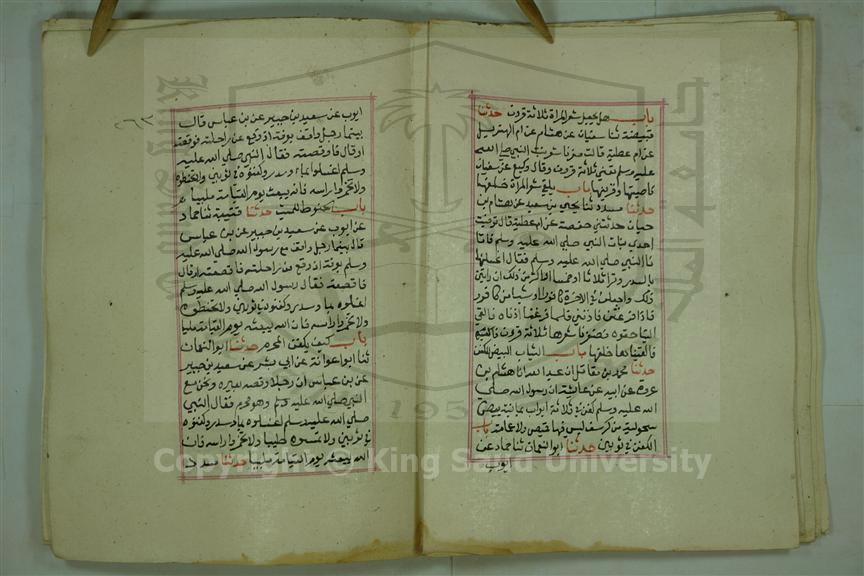 باب هل يجعل شعر المراة ثلاثة قرون حدثنا
قبيصة ثنا سفيان عن هشام عن ام الهذيل
عن ام عطية قالت ضفرنا شعر بنت النبي صلى الله
عليه وسلم تعني ثلاثة قرون وقال وكيع عن سفيان
ناصيتها وقرنيها باب يلقى شعر المراة خلفها
حدثنا مسدد ثنا يحيى بن سعيد عن هشام بن
حسان حدثتني حفصة عن ام عطية قال توفيت
احدى بنات النبي صلى الله عليه وسلم فاتا
نا النبي صلى الله عليه وسلم فقال اغسلنها
بالسدر وترا ثلاثا او خمسا او اكثر من ذلك ان رايتن
ذلك واجعلن في الاخرة كافورا او شيا من كافور
فاذا فرغتن فاذنني فلما فرغنا اذناه فالقى
الينا حقوه فضفرنا شعرها ثلاثة قرون
فالقيناها خلفها باب الثياب البيض للكفن
حدثنا محمد بن مقاتل ان عبد الله انا هشام بن
عروة عن ابيه عن عائشة ان رسول الله صلى
الله عليه وسلم كفن في ثلاثة اثواب يمانية بيض
سحولية من كرسف ليس فيها قميص ولا عمامة باب
الكفن في ثوبين حدثنا ابو النعمان ثنا حماد عن
ايوب
ايوب عن سعيد بن جبير عن بن عباس قال
بينما رجل واقف بعرفة اذ وقع عن راحلته فوقصته
او قال فاوقصته فقال النبي صلى الله عليه
وسلم اغسلوه بماء وسدر وكفنوه في ثوبين ولا تحنطوه
ولا تخمروا راسه فانه يبعث يوم القيامة ملبيا
باب الحنوط للميت حدثنا قتيبة ثنا حماد
عن ايوب عن سعيد بن جبير عن بن عباس
قال بينما رجل واقف مع رسول الله صلى الله عليه
وسلم بعرفة اذ وقع من راحلته فاقصعته او قال
فاقعصته فقال رسول الله صلى الله عليه وسلم
اغسلوه بماء وسدر وكفنوه في ثوبين ولا تحنطوه
ولا تخمروا راسه فان الله يبعثه يوم القيامة ملبيا
باب كيف يكفن المحرم حدثنا ابو النعمان
ثنا ابو اعوانة عن ابي بشر عن سعيد بن جبير
عن بن عباس ان رجلا وقصه بعيره ونحن مع
النبي صلى الله عليه وسلم وهو محرم فقال النبي
صلى الله عليه وسلم اغسلوه بماء وسدر وكفنوه
في ثوبين ولا تمسوه طيبا ولا تخمروا راسه فان
الله يبعثه يوم القيامة ملبيا حدثنا مسدد
Copyright © King Saud University
1957